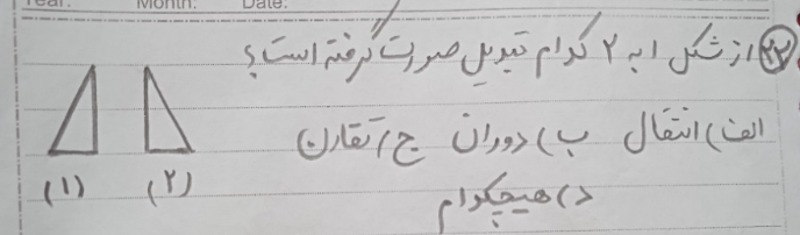 Year: Month: Date:
۲۲) از شکل ۱ به ۲ کدام تبدیل صورت گرفته است؟
الف) انتقال ب) دوران ج) تقارن
د) هیچکدام
(۱) (۲)